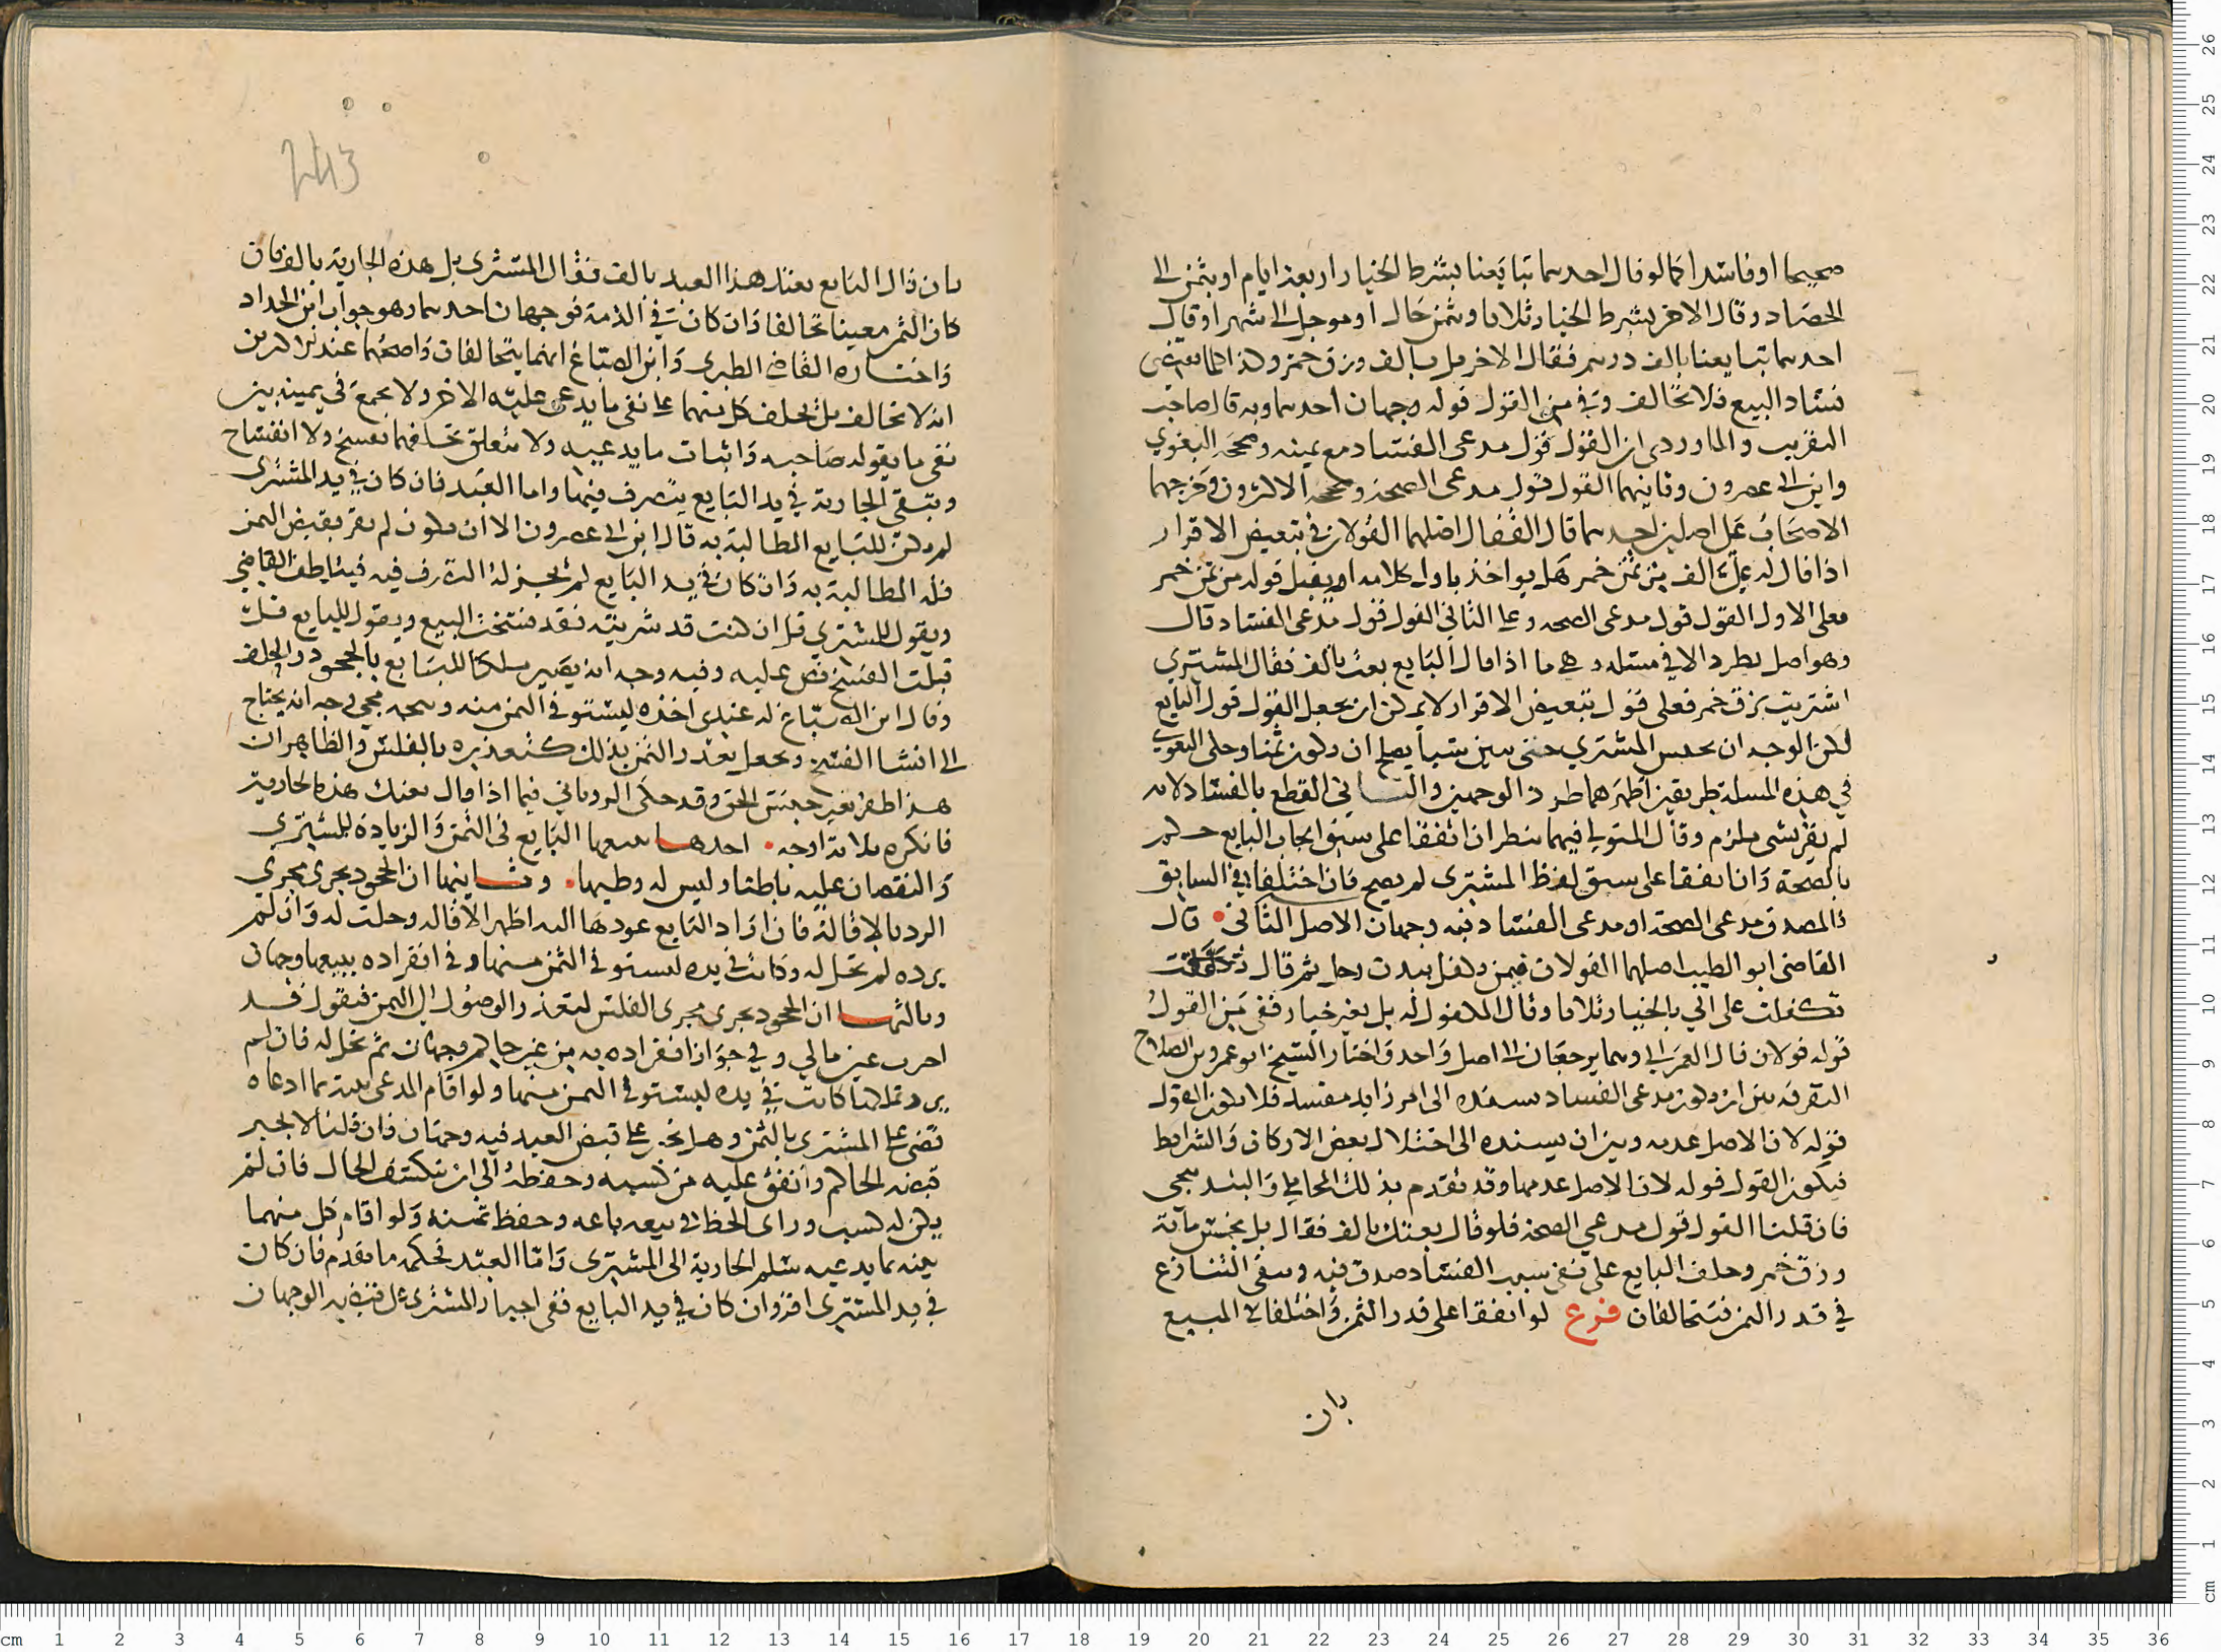 صحيحا او فاسدا كما لو قال احدهما تبايعنا بشرط الخيار اربعة ايام او بثمن الى
الحصاد وقال الاخر بشرط الخيار ثلاثا وبثمن حال او موجل الى شهر او قال
احدهما تبايعنا بالف درهم فقال الاخر بل بالف وزق خمر وكذا كلما يقتضى
فساد البيع فلا تحالف وفي من القول قوله وجهان احدهما وبه قال صاحب
التقريب والماوردى ان القول قول مدعى الفساد مع يمينه وصححه البغوي
وابن ابى عصرون وثانيهما القول قول مدعى الصحة وصححه الاكثرون وخرجهما
الاصحاب على اصلين احدهما قال القفال اصلهما القولان في تبعيض الاقرار
اذا قال له على الف من ثمن خمر هل يواخذ باول كلامه او يقبل قوله من ثمن خمر
فعلى الاول القول قول مدعى الصحه وعلى الثاني القول قول مدعى الفساد قال
وهو اصل يطرد الا في مسئله وهي ما اذا قال البايع بعت بالف فقال المشتري
اشتريت بزق خمر فعلى قول تبعيض الاقرار لا يمكن ان يجعل القول قول البايع
لكن الوجه ان يحبس المشتري حتى يبين شيأ يصلح ان يكون ثمنا وحكى البغوي
في هذه المسلة طريقين اظهرهما طرد الوجهين والثاني القطع بالفساد لانه
لم يقر بشى ملزم وقال المتولي فيهما ينظر ان اتفقا على سبق ايجاب البايع حكم
بالصحة وان اتفقا على سبق لفظ المشترى لم يصح فان اختلفا في السابق
فالمصدق مدعى الصحة او مدعى الفساد فيه وجهان الاصل الثاني قال
القاضى ابو الطيب اصلهما القولان فيمن تكفل ببدن رجل ثم قال
تكفلت على اني بالخيار ثلاثا وقال المكفول له بل بغير خيار ففى من القول
قوله قولان قال العمرانى وهما يرجعان الى اصل واحد واختار الشيخ ابو عمرو بن الصلاح
التفرقه بين ان يكون مدعى الفساد يسنده الى امر زايد مفسد فلا يكون القول
قوله لان الاصل عدمه وبين ان يسنده الى اختلال بعض الاركان والشرايط
فيكون القول قوله لان الاصل عدمها وقد تقدم بذلك المحاملي والبندنيجي
فان قلنا القول قول مدعي الصحة فلو قال بعتك بالف فقال بل بخمس مائة
وزق خمر وحلف البايع على نفى سبب الفساد صدق فيه وبقى التنازع
في قدر الثمن فيتحالفان فرع لو اتفقا على قدر الثمن واختلفا في المبيع
بان
243
بان قال البايع بعتك هذا العبد بالف فقال المشترى بل هذه الجارية بالف فان
كان الثمن معينا تحالفا وان كان في الذمة فوجهان احدهما وهو جواب ابن الحداد
واختاره القاضي الطبرى وابن الصباغ انهما يتحالفان واصحهما عند
انه لا تحالف بل يحلف كل منهما على نفى ما يدعى عليه الاخر ولا يجمع في يمينه بين
نفى ما يقوله صاحبه واثبات ما يدعيه ولا يتعلق بتحالفهما فسخ ولا انفساخ
وتبقى الجارية في يد البايع يتصرف فيها واما العبد فان كان في يد المشترى
لم يكن للبايع المطالبة به قال ابن ابى عصرون الا ان يكون لم يقر بقبض الثمن
فله المطالبة به وان كان في يد البايع لم يجز له التصرف فيه فيتلطف القاضي
ويقول للمشتري قل ان كنت قد شريته فقد فسخت البيع ويقول للبايع قل
قبلت الفسخ نص عليه وفيه وجه انه يصير ملكا للبايع بالجحود والحلف
وقال ابن الصباغ له عندي اخذه ليستوفي الثمن منه وسحه يجي وجه انه يحتاج
الى انشا الفسخ وبجعل تعذر الثمن بذلك كتعذيره بالفلس والظاهر ان
هذا ظفر بغير جنس الحق وقد حكى الروياني فيما اذا قال بعتك هذه الجارية
فانكره ثلاثة اوجه احدها يبيعها البايع في الثمن والزيادة للمشتري
والنقصان عليه باطنا وليس له وطيها وثانيها ان الجحود يجرى مجرى
الرد بالاقالة فان اراد البايع عودها اليه اظهر الاقاله وحلت له وان لم
يرده لم تحل له وكانت في يده ليستوفي الثمن منها وفى انفراده ببيعها وجهان
وثالثها ان الجحود يجرى مجرى الفلس لتعذر الوصول الى الثمن فيقول قد
عين مالي وفي جواز انفراده به من غير حاكم وجهان ثم تحل له فان لم
يرد تملكها كانت في يده ليستوفي الثمن منها ولو اقام المدعى بينة بما ادعاه
قضى على المشترى بالثمن وهل يجبر على قبض العبد فيه وجهان فان قلنا لا يجبر
قبضه الحاكم وانفق عليه من كسبه وحفظه الى ان ينكشف الحال فان لم
يكن له كسب وراى الحظ في بيعه باعه وحفظ ثمنه ولو اقام كل منهما
بينه بما يدعيه سلم الجارية الى المشترى واما العبد فحكمه ما تقدم فان كان
في يد المشترى اقر وان كان في يد البايع ففى اجبار المشترى على قبضه الوجهان